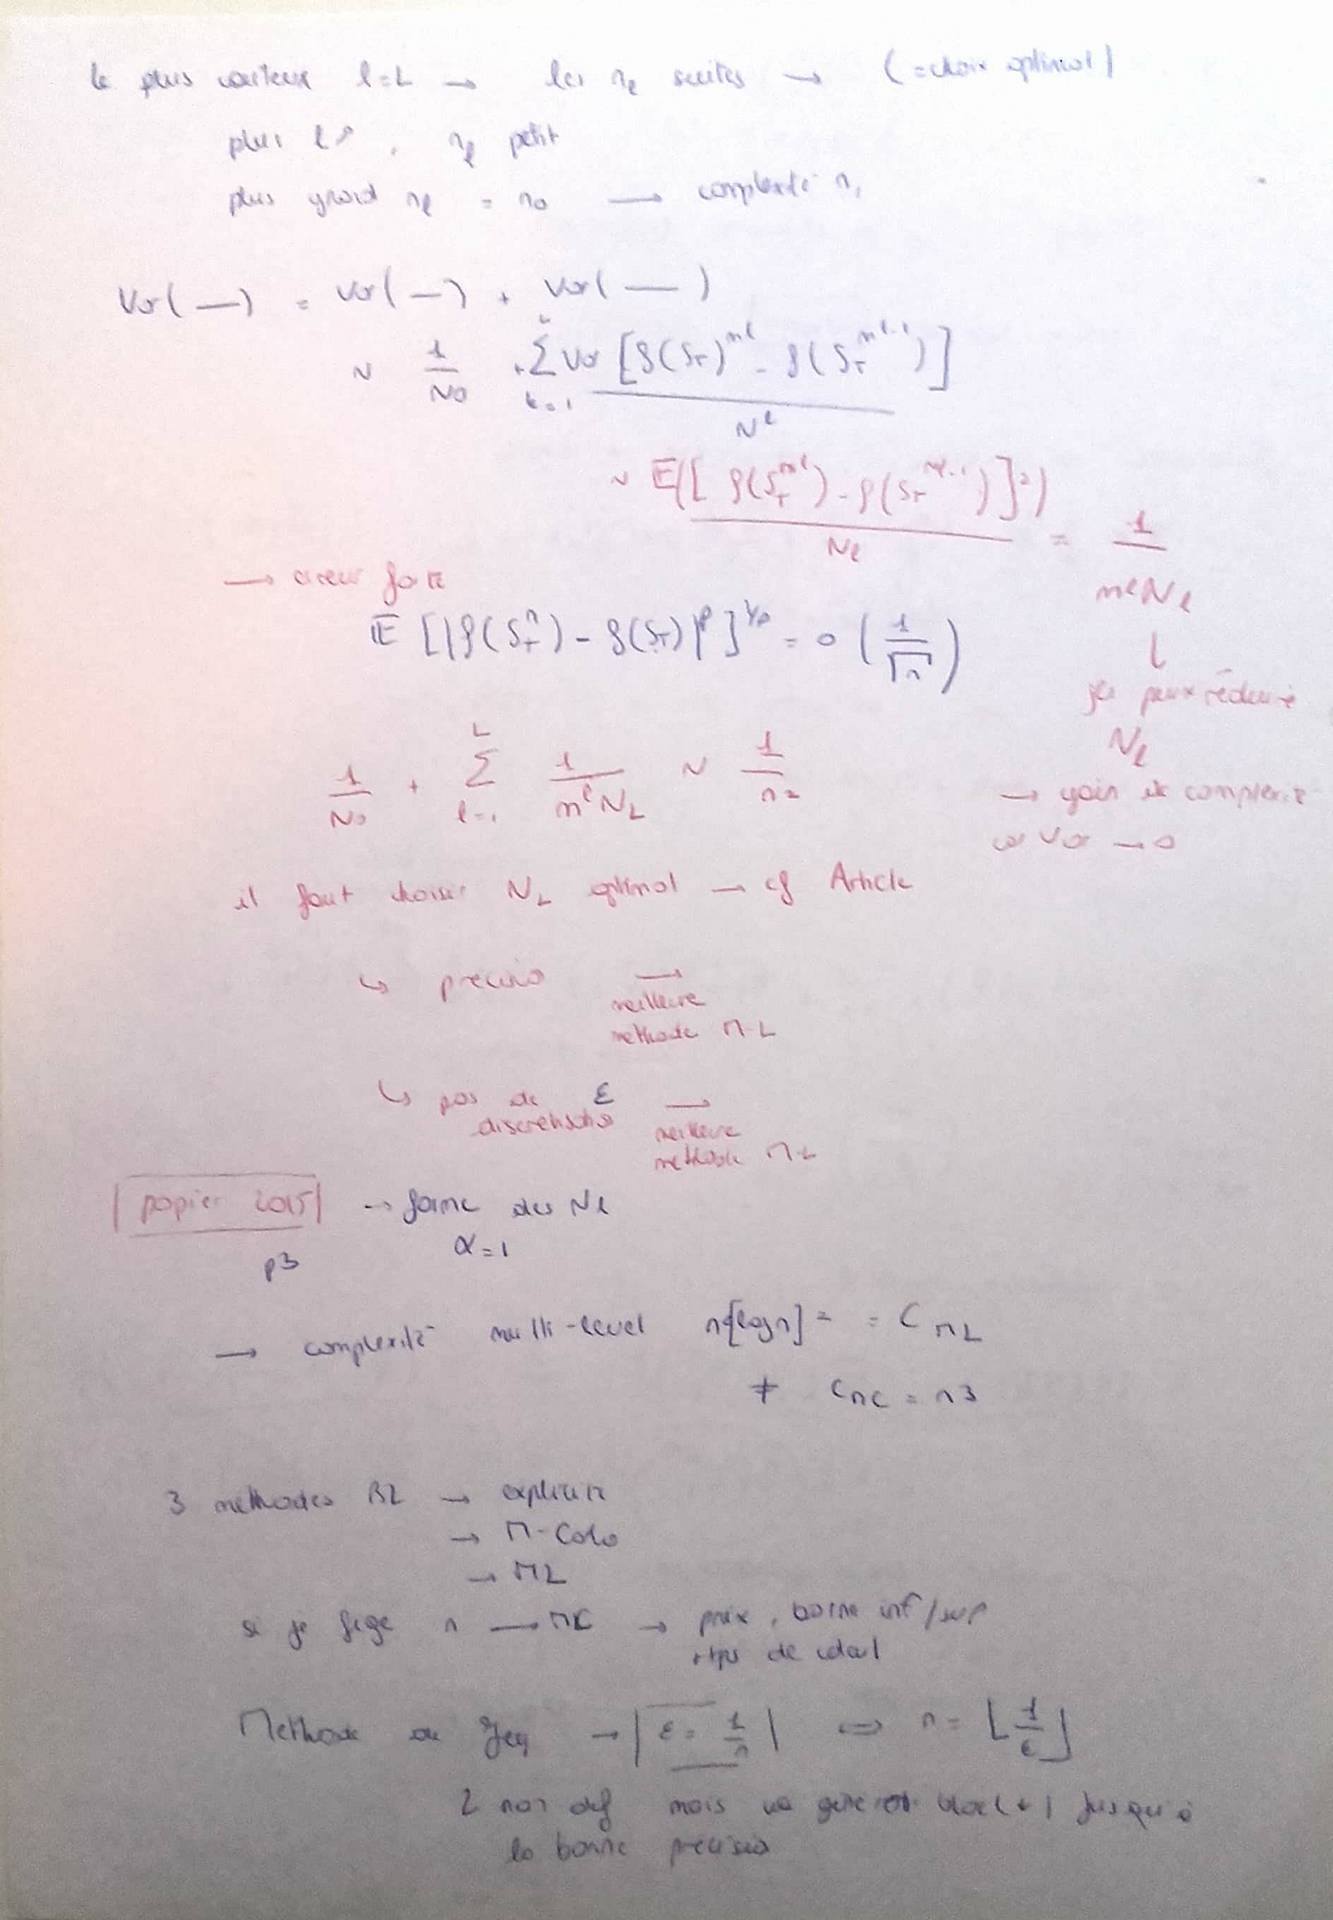 le plus couteux l=L → les n_l suites → (=choix optimal)
plus l↗, n_l petit
plus grand n_l = n_0 → complexité n,
Var(—) = Var(—) + Var(—)
~ 1/N_0 + Σ_{k=1}^{L} Var[f(S_T)^{m^l} - f(S_T^{m^{l-1}})] / N^l
~ E([f(S_T^{m^l}) - f(S_T^{m^{l-1}})]²) / N_l = 1 / m^l N_l
→ erreur forte
E[|f(S_T^n) - f(S_T)|^p]^{1/p} = o(1/√n)
↓
je peux réduire
N_l
1/N_0 + Σ_{l=1}^{L} 1/(m^l N_L) ~ 1/n²
→ gain de complexité
car Var → 0
il faut choisir N_L optimal → cf Article
↳ precisio → meilleure
methode M-L
↳ pas de ε → meilleure
discretisatio methode ML
papier 2015 → forme des N_l
p3 α=1
→ complexité multi-level n[log n]² = C_ML
≠ C_MC = n3
3 methodes → explicite
→ M-Carlo
→ ML
si je fixe n → MC → prix, borne inf/sup
+ tps de calcul
Methode de → | ε = 1/n | ⇔ n = ⌊1/ε⌋
L non def mais va jusqu'à
la bonne precisio